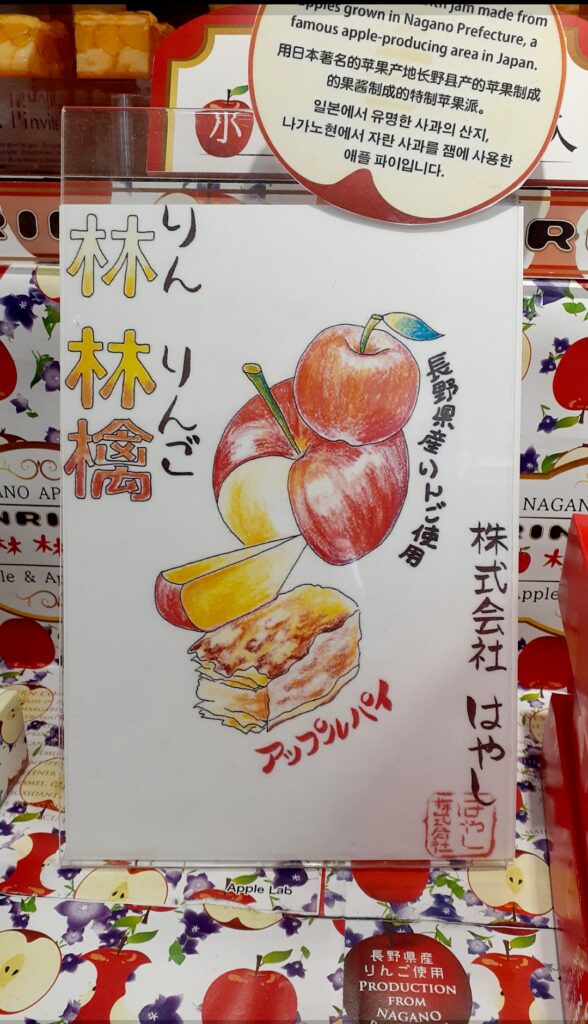 jam made from
apples grown in Nagano Prefecture, a
famous apple-producing area in Japan.
用日本著名的苹果产地长野县产的苹果制成
的果酱制成的特制苹果派。
일본에서 유명한 사과의 산지,
나가노현에서 자란 사과를 잼에 사용한
애플 파이입니다.
林 りん
林檎 りんご
長野県産りんご使用
株式会社 はやし
アップルパイ
はやし
株式会社
Apple Lab
長野県産
りんご使用
PRODUCTION
FROM
NAGANO
NAGANO